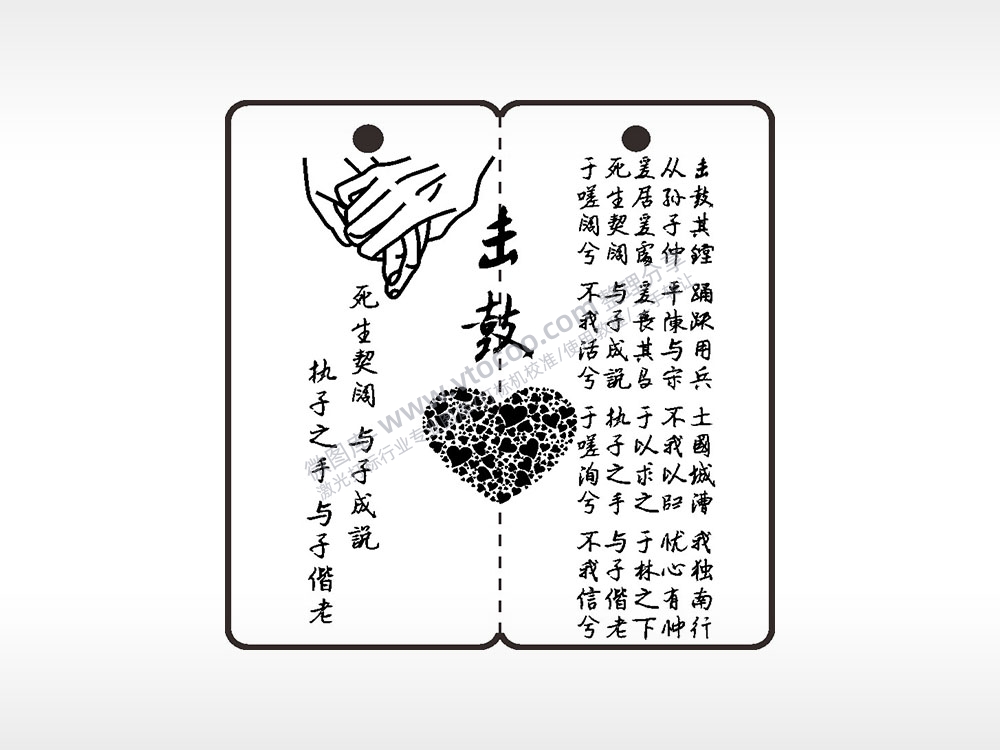 击鼓
死生契阔 与子成説
执子之手 与子偕老
击鼓其镗 踊跃用兵 土國城漕 我独南行
从孙子仲 平陳与宋 不我以归 忧心有忡
爰居爰處 爰丧其马 于以求之 于林之下
死生契阔 与子成説 执子之手 与子偕老
于嗟阔兮 不我活兮 于嗟洵兮 不我信兮
微图库 www.vtocoo.com 整理分享